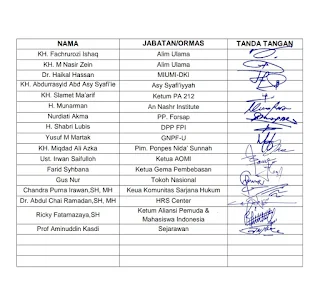 NAMA JABATAN/ORMAS TANDA TANGAN
KH. Fachrurozi Ishaq Alim Ulama
KH. M Nasir Zein Alim Ulama
Dr. Haikal Hassan MIUMI-DKI
KH. Abdurrasyid Abd Asy Syafi'ie Asy Syafi'iyyah
KH. Slamet Ma'arif Ketum PA 212
H. Munarman An Nashr Institute
Nurdiati Akma PP. Forsap
H. Shabri Lubis DPP FPI
Yusuf M Martak GNPF-U
KH. Miqdad Ali Azka Pim. Ponpes Nida' Sunnah
Ust. Irwan Saifulloh Ketua AOMI
Farid Syhbana Ketua Gema Pembebasan
Gus Nur Tokoh Nasional
Chandra Purna Irawan,SH, MH Keua Komunitas Sarjana Hukum
Dr. Abdul Chai Ramadan,SH, MH HRS Center
Ricky Fatamazaya,SH Ketum Aliansi Pemuda & Mahasiswa Indonesia
Prof Aminuddin Kasdi Sejarawan